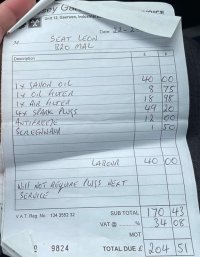 Unit 12, Swansea, Industrial
Date
M SEAT LEON
B20 MAL
Description £ P
1x SAVON OIL 40 00
1x OIL FILTER 8 75
1x AIR FILTER 18 98
4x SPARK PLUGS 49 20
ANTIFREEZE 12 00
SCREENWASH 1 50
LABOUR 40 00
WILL NOT REQUIRE PLUGS NEXT
SERVICE
V.A.T. Reg. No. 134 3552 32 SUB TOTAL 170 43
VAT @ % 34 08
MOT
9824 TOTAL DUE £ 204 51